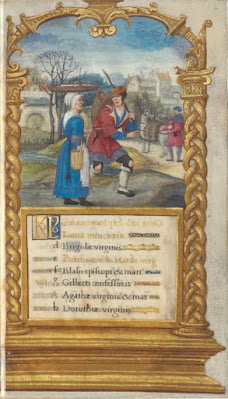 KL
Luna xxix
d Brigidæ virginis
e Purificatio Mariæ virg
f Blasii episcopi & mart
g Gilberti confessoris
A Agathæ virginis & mar
b Dorotheæ virginis